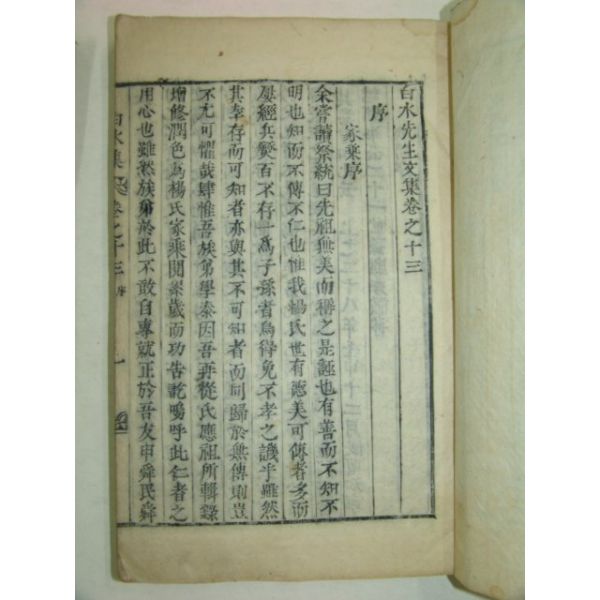 白水先生文集卷之十三
序
家乘序
余嘗讀祭統曰先祖無美而稱之是誣也有善而不知不
明也知而不傳不仁也惟我楊氏世有德美可傳者多而
屢經兵燹百不存一爲子孫者烏得免不孝之譏乎雖然
其幸存而可知者亦與其不可知者而同歸於無傳則豈
不尤可懼哉肆惟吾族弟學泰因吾再從氏應祖所輯錄
增修潤色爲楊氏家乘閱累歲而功告訖嗚呼此仁者之
用心也雖然族弟於此不敢自專就正於吾友申舜民舜
白水集 卷之十三 序 一